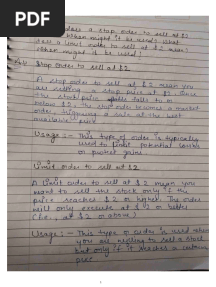 PDF
a stop order to sell at $2
might it be used? What
a limit order to sell at $2 mean?
might it be used?
Stop order to sell at $2
A stop order to sell at $2 means you
are setting a stop price at $2. Once
the stock price falls to or
below $2, the stop order becomes a market
order, triggering a sale at the best
available price.
Usage :- This type of order is typically
used to limit potential losses
or protect gains.
Limit order to sell at $2
A limit order to sell at $2 means you
want to sell the stock only if the
price reaches $2 or higher. The order
will only execute at $2 or better
(i.e., at $2 or above)
Usage :- This type of order is used when
you are willing to sell a stock
but only if it reaches a certain
price